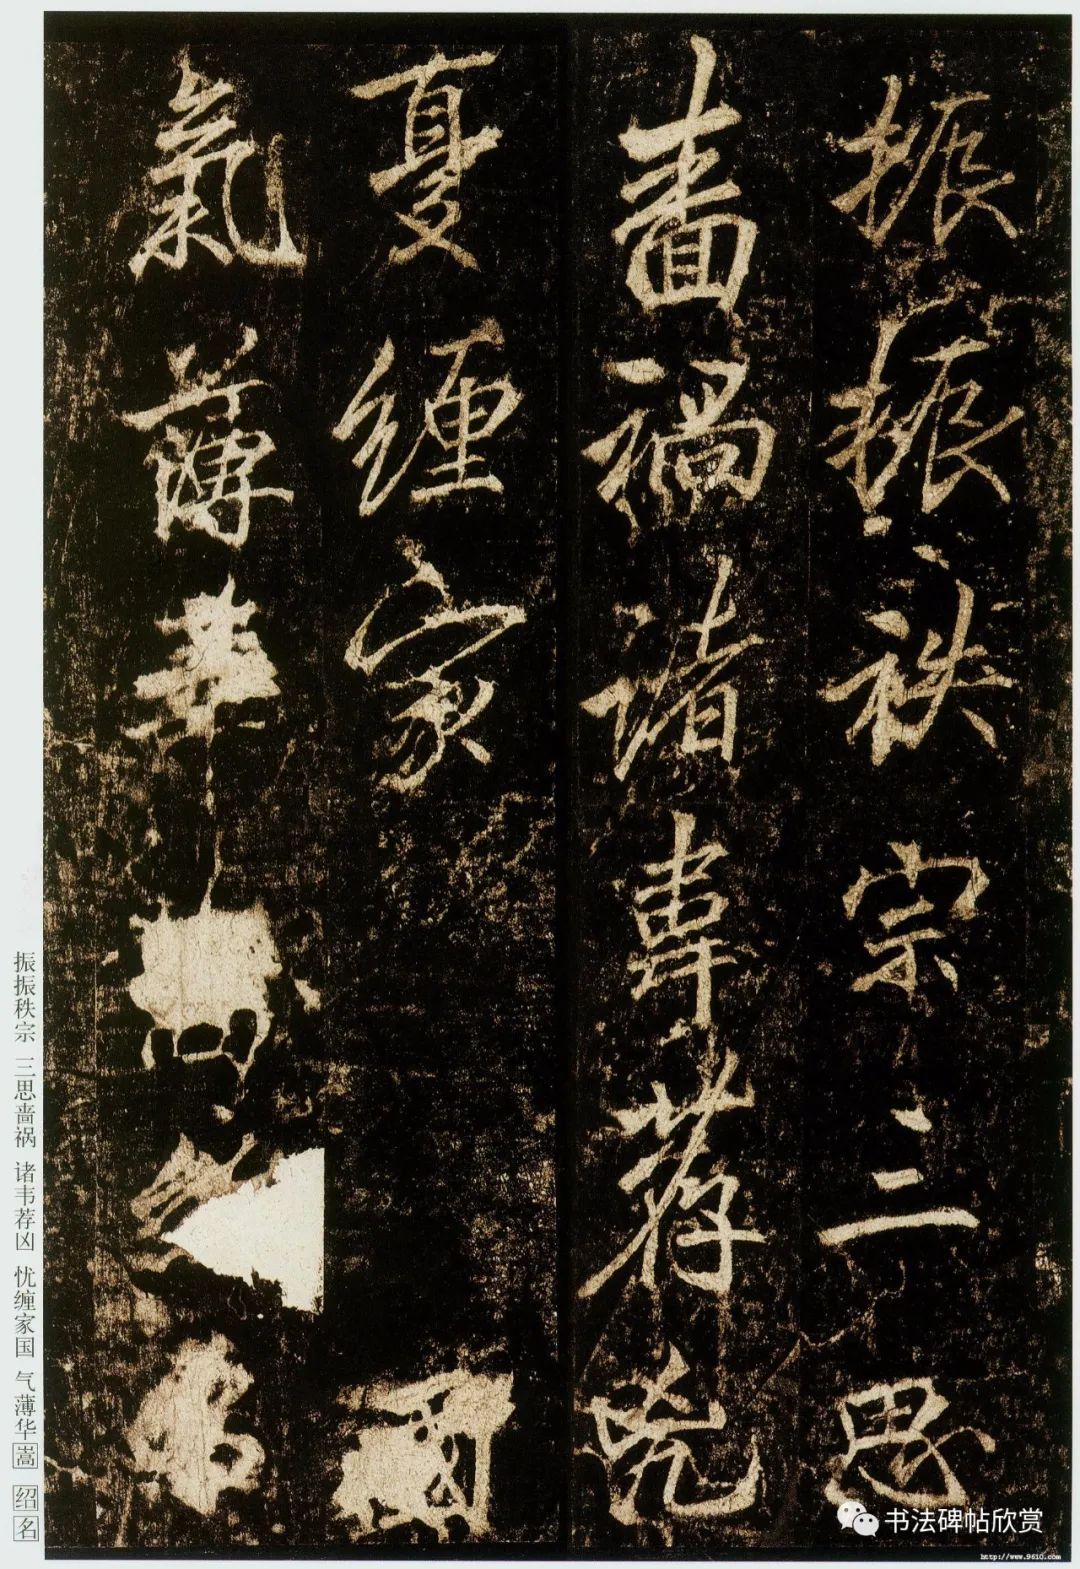 振振秩宗三思
嗇禍諸韋荐兇
憂纏家國
氣薄華
振振秩宗 三思啬祸 诸韦荐凶 忧缠家国 气薄华嵩 绍名
书法碑帖欣赏
http://www.9610.com